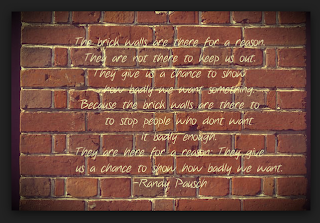 The brick walls are there for a reason.
They are not there to keep us out.
They give us a chance to show
how badly we want something.
Because the brick walls are there to
to stop people who dont want
it badly enough.
They are here for a reason. They give
us a chance to show how badly we want.
-Randy Pausch